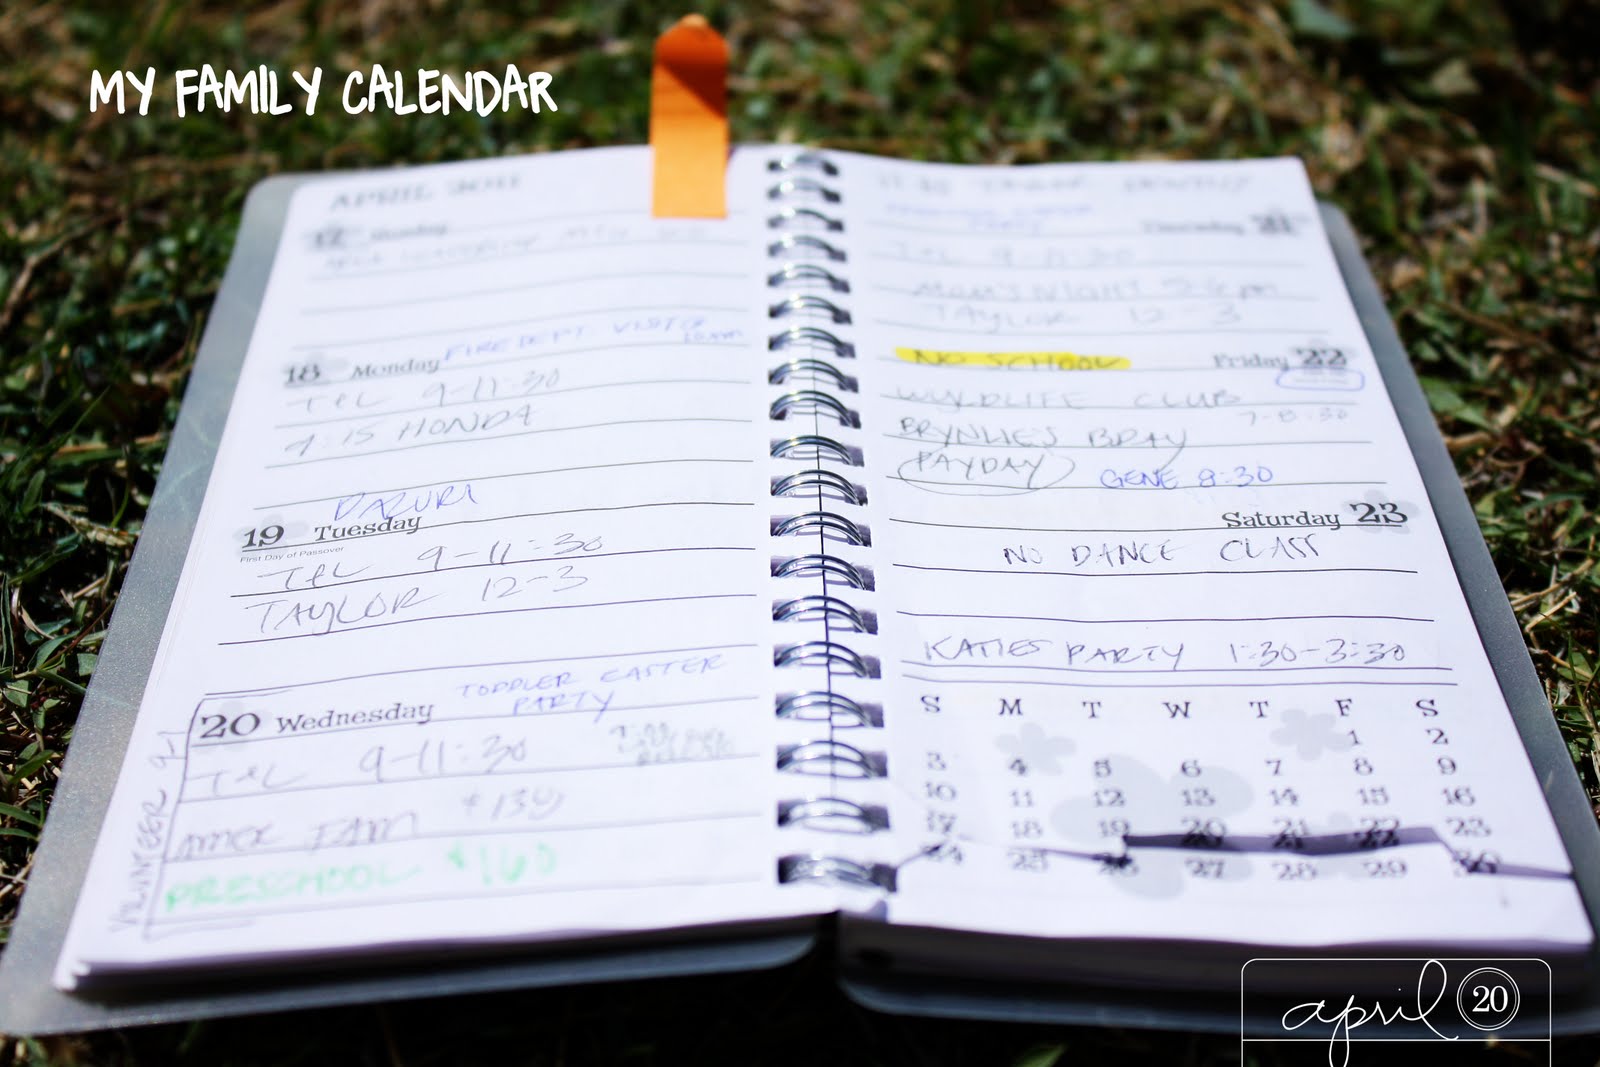 MY FAMILY CALENDAR
APRIL 2011
17 Sunday
FIRE DEPT VISIT
10am
18 Monday
T&L 9-11:30
4:15 HONDA
19 Tuesday
First Day of Passover
T&L 9-11:30
TAYLOR 12-3
TODDLER EASTER
PARTY
20 Wednesday
T&L 9-11:30
AMER FAM
PRESCHOOL $160
VOLUNTEER 9-1
Thursday 21
T&L 9-11:30
MOM'S NIGHT
TAYLOR 12-3
NO SCHOOL Friday 22
WYLDLIFE CLUB
7-8:30
BRYNLIE'S BDAY
PAYDAY GENE 8:30
Saturday 23
NO DANCE CLASS
KATIES PARTY 1:30-3:30
S M T W T F S
1 2
3 4 5 6 7 8 9
10 11 12 13 14 15 16
17 18 19 20 21 22 23
24 25 26 27 28 29 30
april 20